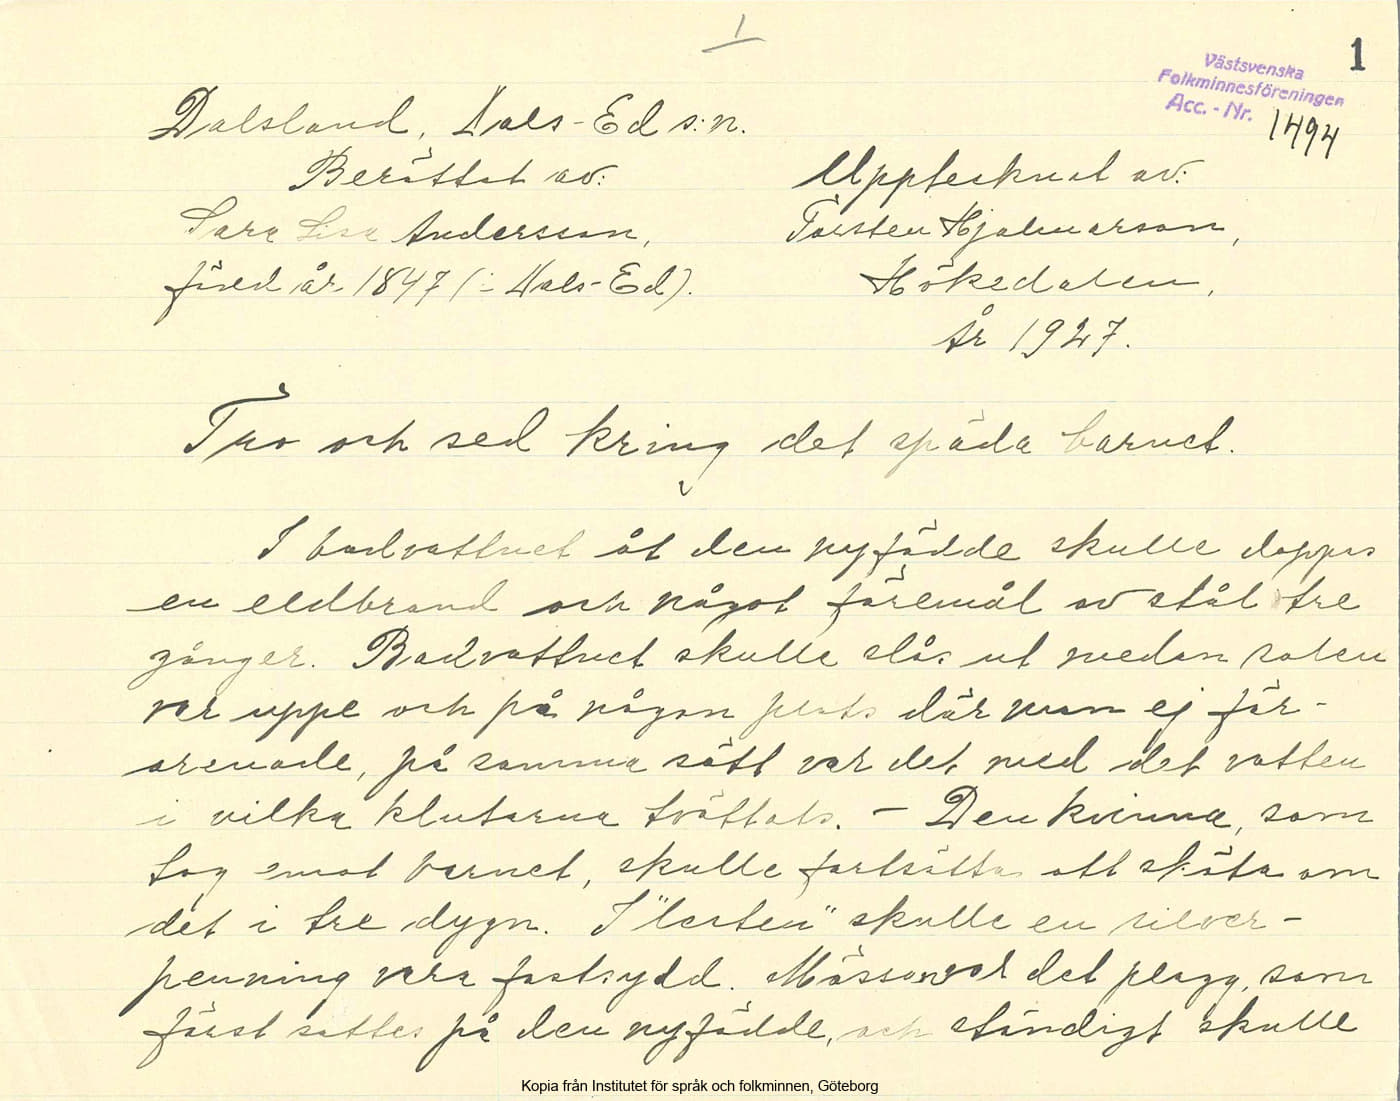 1
1
Västsvenska
Folkminnesföreningen
Acc. - Nr. 1494
Dalsland, Dals-Ed s:n.
Berättat av:
Sara Lisa Andersson,
född år 1847 (i Dals-Ed).
Upptecknat av:
Torsten Hjalmarson,
Höksdalen,
År 1927.
Tro och sed kring det späda barnet.
I badvattnet åt den nyfödde skulle doppas
en eldbrand och något föremål av stål tre
gånger. Badvattnet skulle slås ut medan solen
var uppe och på någon plats där man ej för-
orenade, på samma sätt var det med det vatten
i vilka klutarna tvättats. – Den kvinna, som
tog emot barnet, skulle fortsätta att sköta om
det i tre dygn. I "lesten" skulle en silver-
penning vara fastsydd. Mössan var det plagg, som
först sattes på den nyfödde, och ständigt skulle
Kopia från Institutet för språk och folkminnen, Göteborg